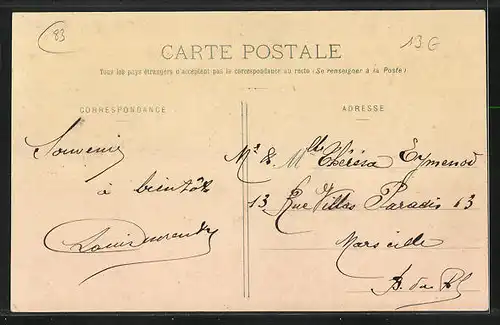 83
13 G
CARTE POSTALE
Tous les pays étrangers n'acceptent pas la correspondance au recto (Se renseigner à la Poste)
CORRESPONDANCE
ADRESSE
Souvenir
à bientôt
M. & Mlle Thérésa Eymenod
13 Rue Villas Paradis 13
Marseille
B. du R.